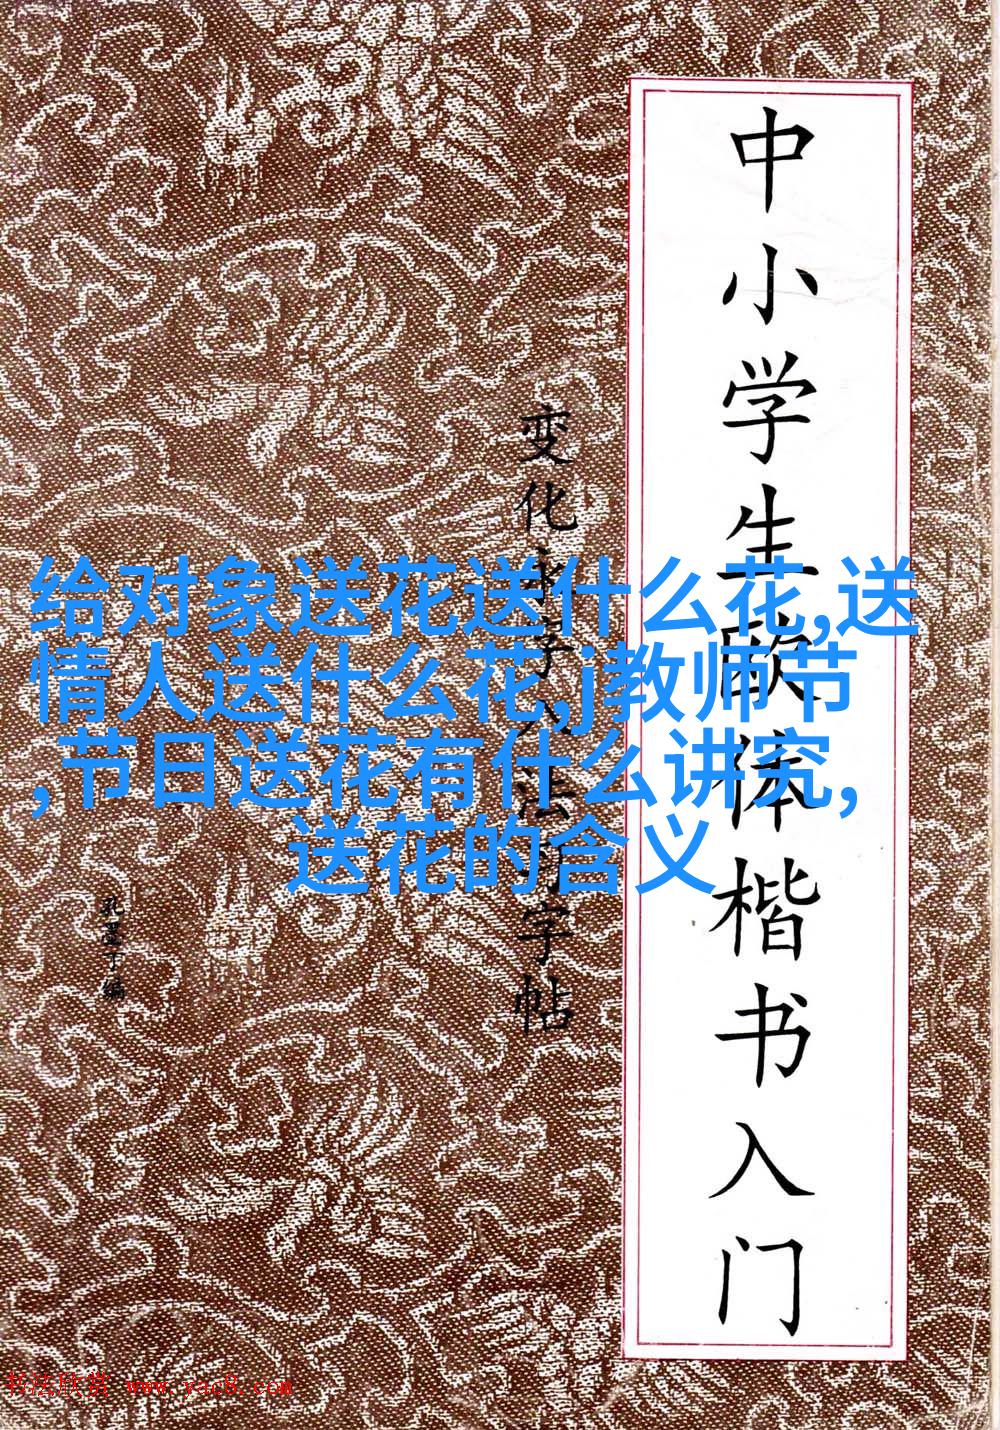 中小学生欧体楷书入门
变化永字八法习字帖
孔墨丁编
给对象送花送什么花,送
情人送什么花,j教师节
,节日送花有什么讲究,
送花的含义
书法欣赏 www.yac8.com